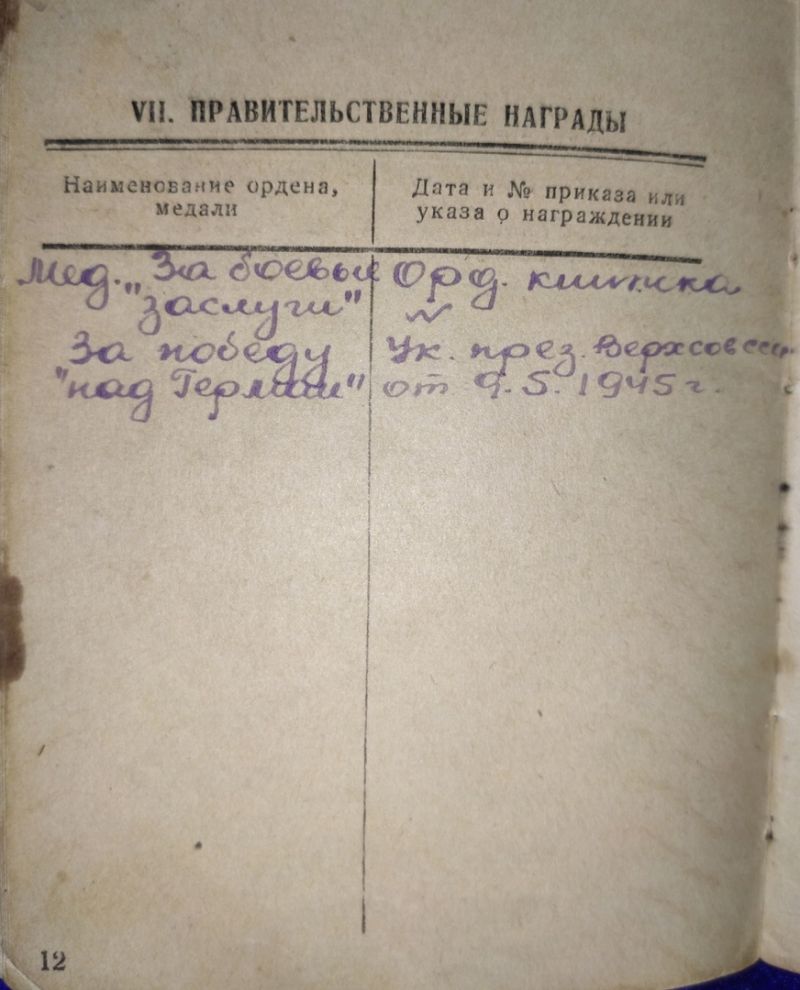 VII. ПРАВИТЕЛЬСТВЕННЫЕ НАГРАДЫ
Наименование ордена,
медали
Дата и № приказа или
указа о награждении
Мед. „За боевые
"заслуги"
Орд. книжка
№
За победу
"над Герман"
Ук. през. Верхсовета
от 9.5.1945 г.
12